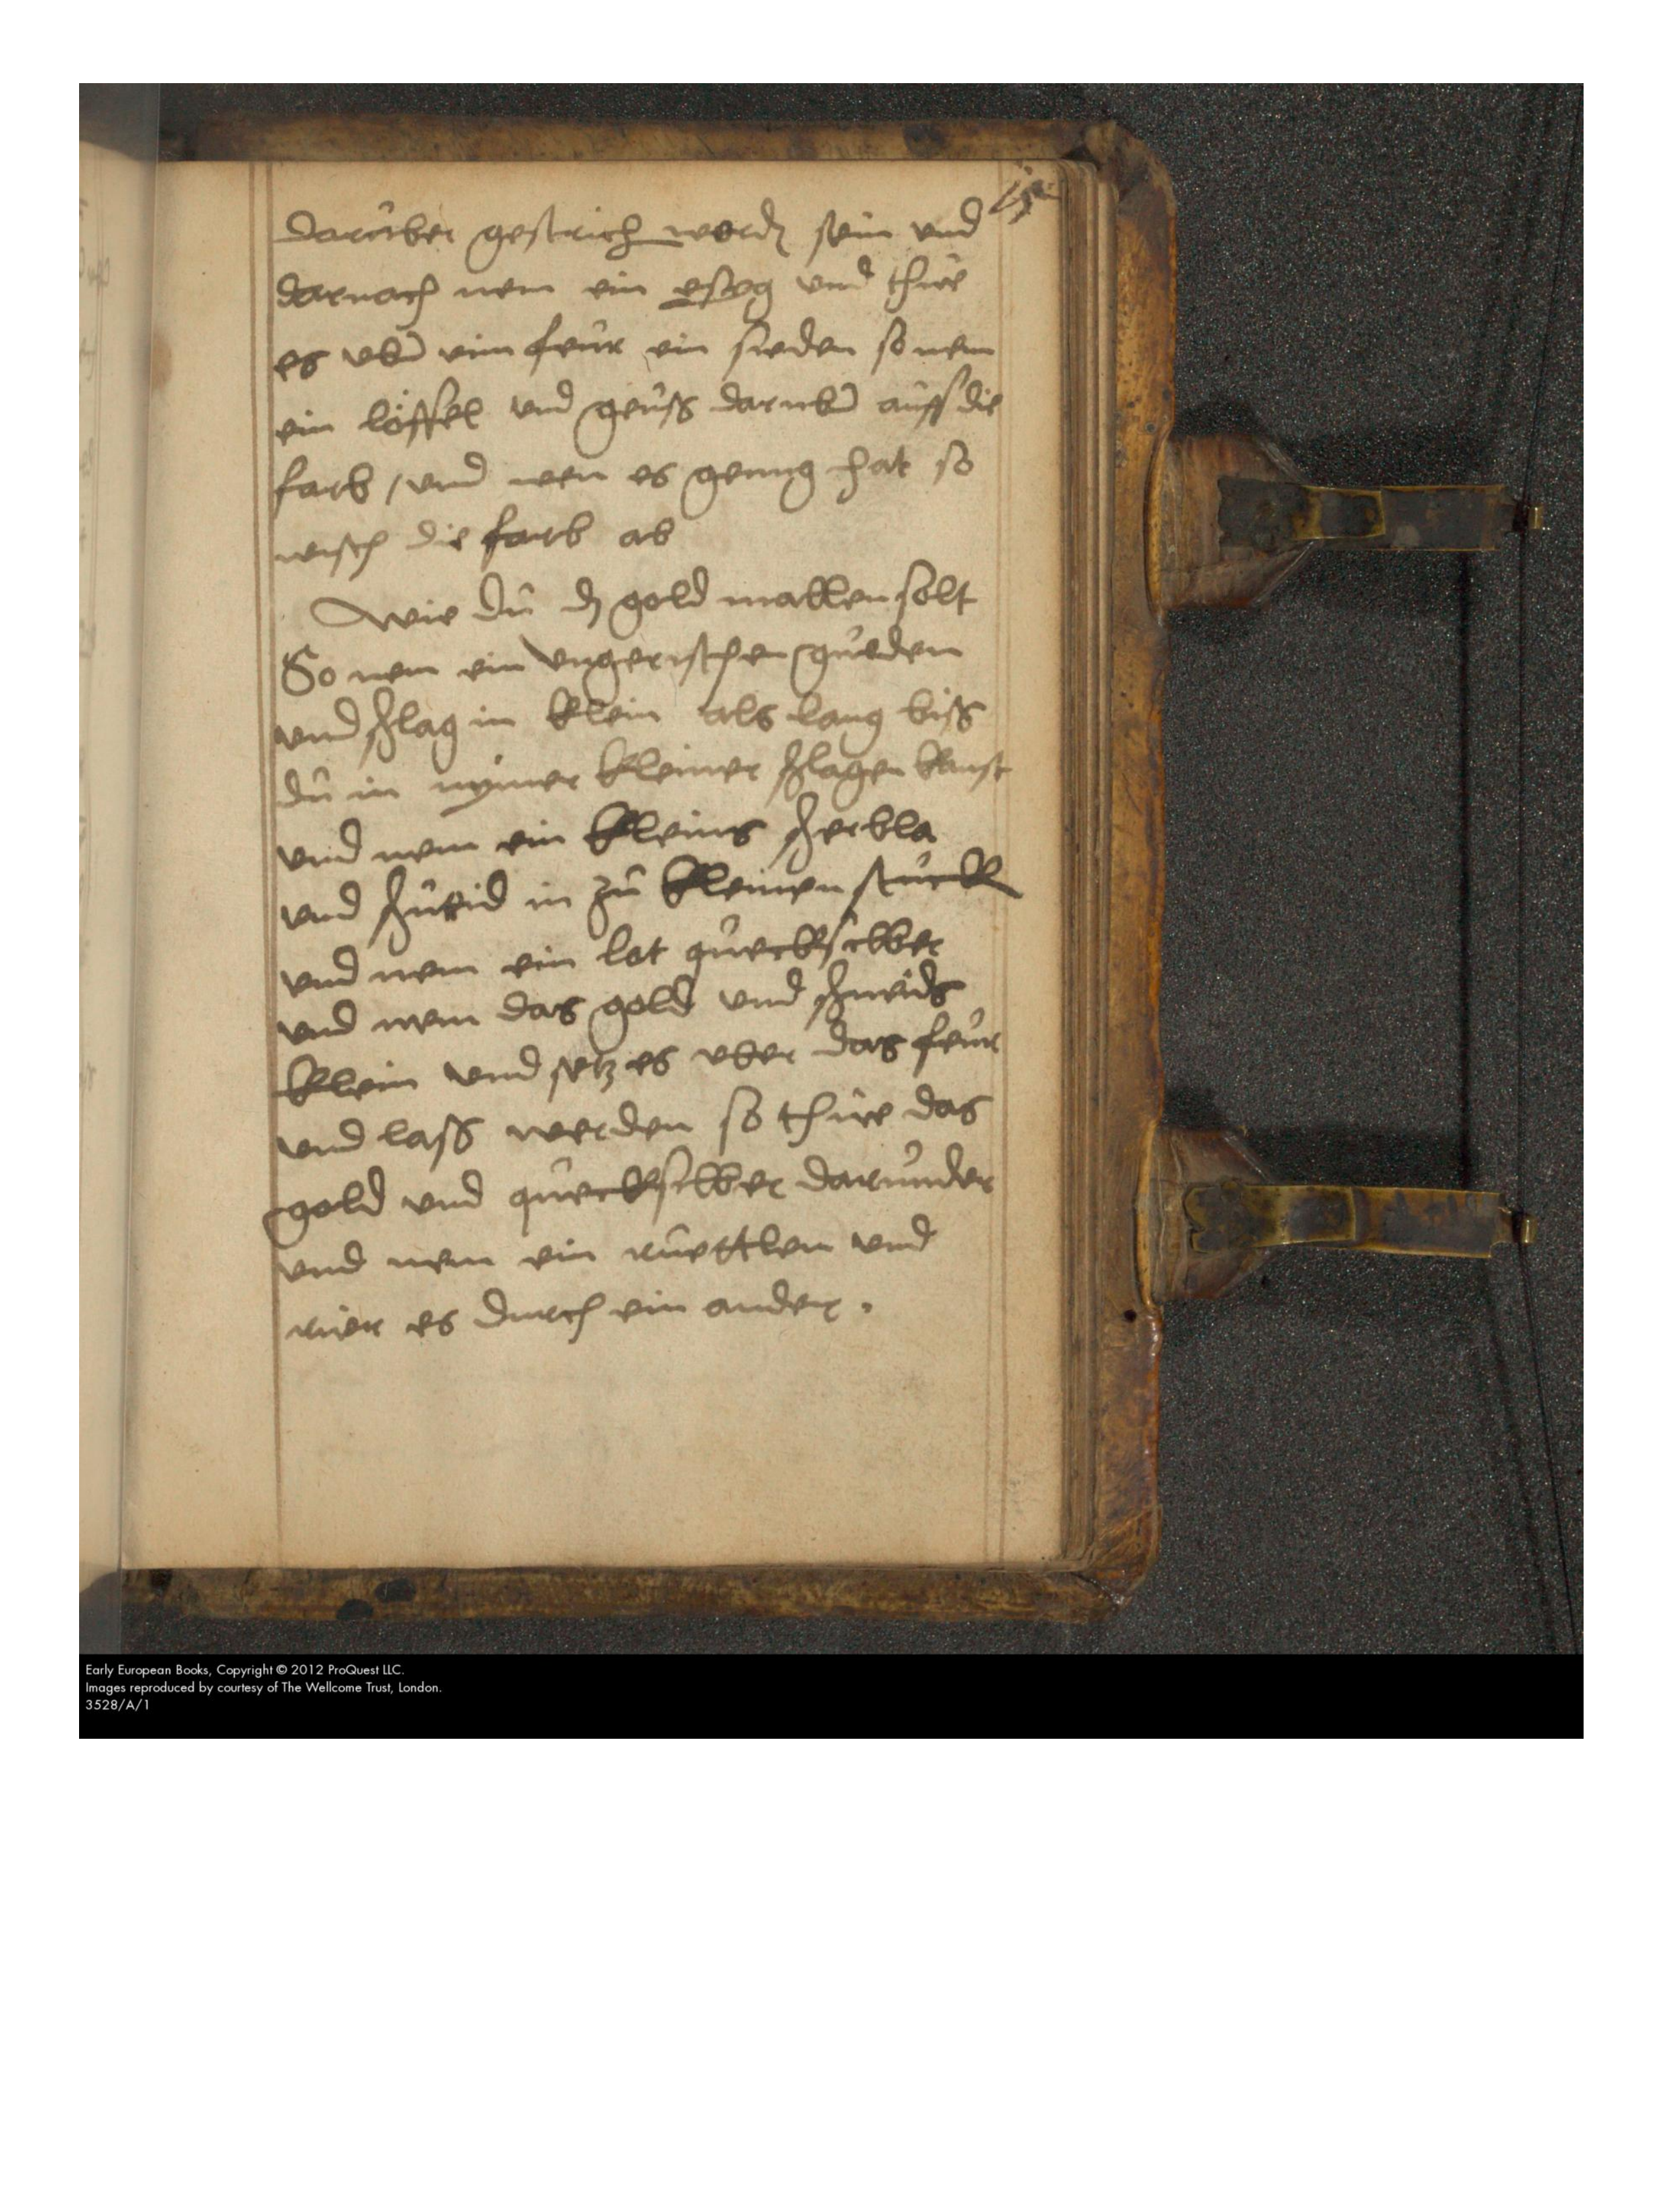 darüber gestrich werdn sein und
darnach nem ein eseg und thüe
es uber eim feür ein sieden so nem
ein löffel und geüss daruber aüff die
farb / und wen es genug hat so
wisch die farb ab
Wie dü dz gold mallen solt
So nem ein ungerischen gulden
und schlag in klein als lang biss
dü in nymer kleiner schlagen kanst
und nem ein kleins scherbla
und in zü kleinen stück
und nem ein lot quecksilber
und nem das gold und schneids
klein und setz es uber das feür
und lass werden so thüe das
gold und quecksilber darunder
und nem ein ruettlen und
rüer es durch ein ander.
Early European Books, Copyright © 2012 ProQuest LLC.
Images reproduced by courtesy of The Wellcome Trust, London.
3528/A/1